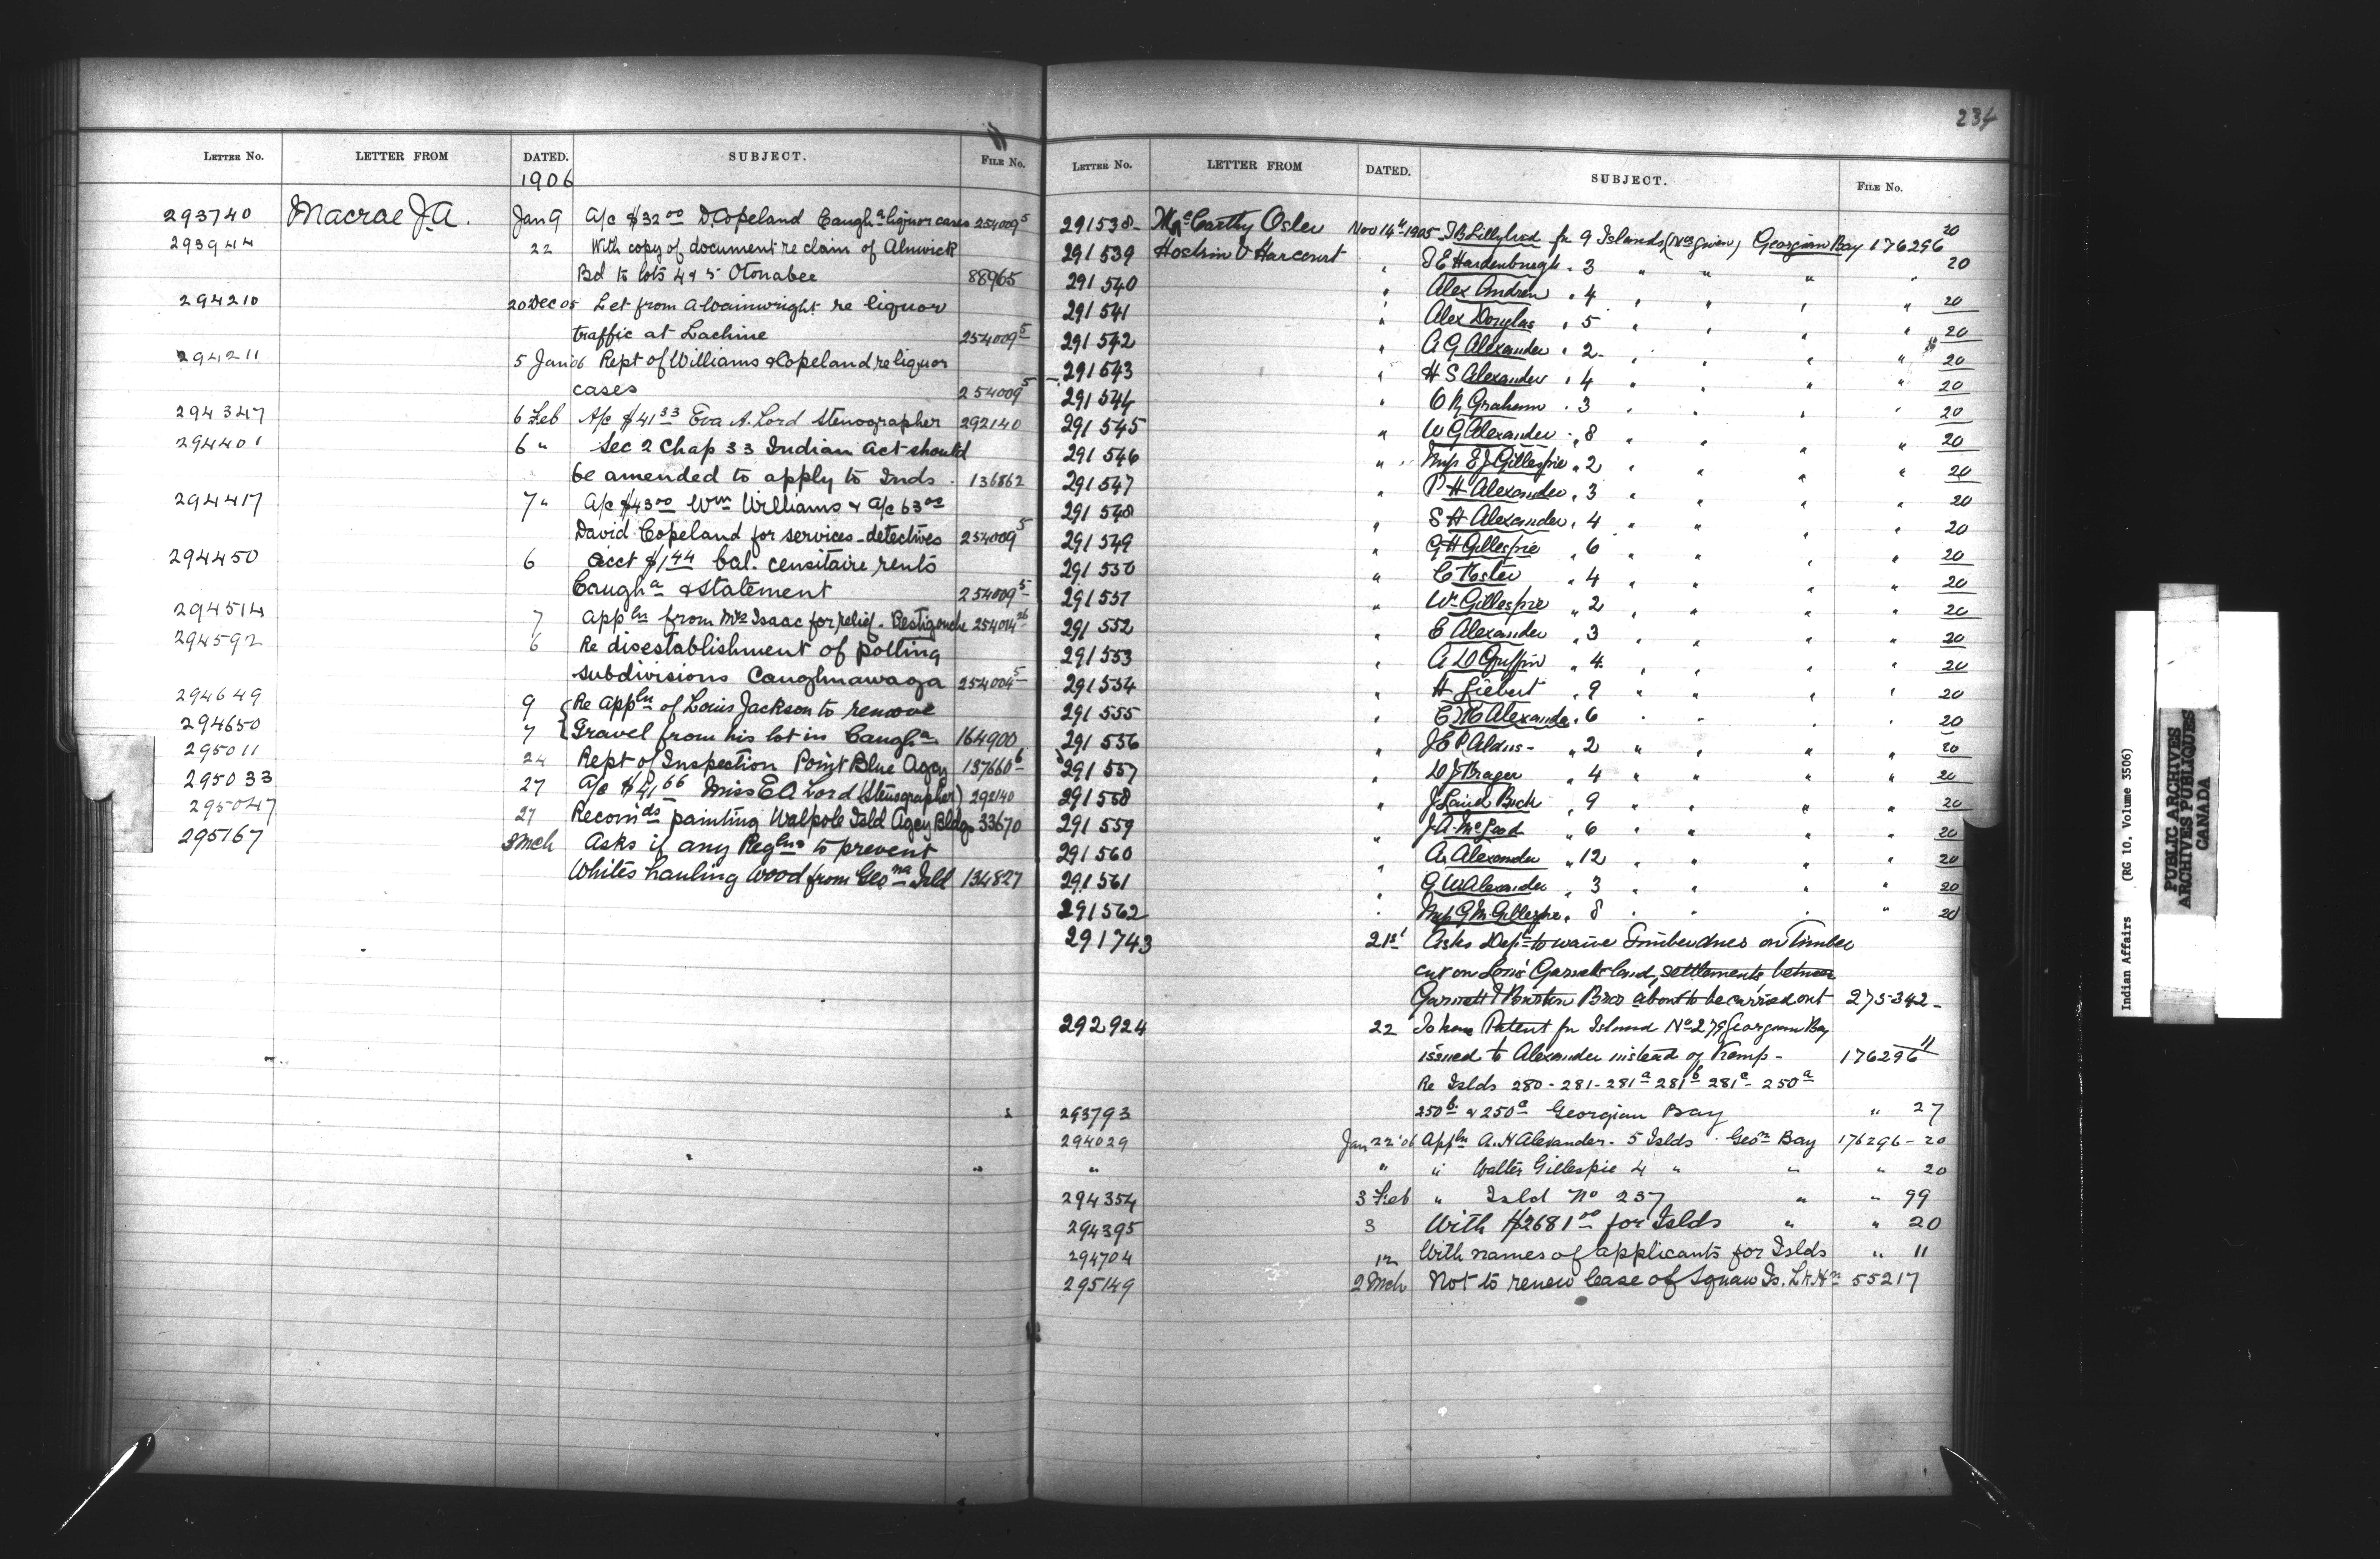 LETTER No. LETTER FROM DATED. SUBJECT. FILE No.
1906
293740 Macrae J.A. Jan 9 A/c $32 00 D. Copeland Caugh a liquor cases 254009 5
293944 22 With copy of document re claim of Alnwick
Bd to lots 4 & 5 Otonabee 88965
294210 20 Dec 05 Let from A Wainwright re liquor
traffic at Lachine 254009 5
294211 5 Jan 06 Rept of Williams & Copeland re liquor
cases 254009 5
294347 6 Feb A/c $41 33 Eva A. Lord Stenographer 292140
294401 6 " Sec 2 Chap 33 Indian Act should
be amended to apply to Inds. 136862
294417 7 " A/c $43 00 Wm Williams & A/c 63 00
David Copeland for services - detectives 254009 5
294450 6 Acct $1 44 bal. censitaire rents
Caugh a & statement 254009 5
294514 7 Appln from Mrs Isaac for relief - Restigouche 254014 26
294592 6 Re disestablishment of polling
subdivisions Caughnawaga 254004 5
294649 9 { Re Appln of Louis Jackson to remove
294650 7 { Gravel from his lot in Caugh a 164900
295011 24 Rept of Inspection Point Blue Agcy 137660 6
295033 27 A/c $41 66 Miss E A Lord (Stenographer) 292140
295047 27 Recom'ds painting Walpole Isld Agcy Bldgs 33670
295167 3 Mch Asks if any Reglns to prevent
Whites hauling wood from Geo na Isld 134827
234
LETTER No. LETTER FROM DATED. SUBJECT. FILE No.
291538 McCarthy Osler Nov 14th 1905 for 9 Islands (Nos given) Georgian Bay 176296 20
291539 Hoskin & Harcourt " Hardenburgh " 3 " " " " 20
291540 " Alex " 4 " " " " 20
291541 " Alex Douglas " 5 " " " " 20
291542 " A G Alexander " 2 " " " " 20
291543 " H S Alexander " 4 " " " " 20
291544 " Graham " 3 " " " " 20
291545 " W G Alexander " 8 " " " " 20
291546 " Mrs E J Gillespie " 2 " " " " 20
291547 " P H Alexander " 3 " " " " 20
291548 S H Alexander " 4 " " " " 20
291549 " G H Gillespie " 6 " " " " 20
291550 " C " 4 " " " " 20
291551 " W Gillespie " 2 " " " " 20
291552 " E Alexander " 3 " " " " 20
291553 " A D Griffin " 4 " " " " 20
291554 " H Liebert " 9 " " " " 20
291555 " Alexander " 6 " " " " 20
291556 " J E P Aldus " 2 " " " " 20
291557 " " 4 " " " " 20
291558 " J Laird " 9 " " " " 20
291559 " J A McLeod " 6 " " " " 20
291560 " A. Alexander " 12 " " " " 20
291561 " G W Alexander " 3 " " " " 20
291562 " Mrs G M Gillespie " 8 " " " " 20
291743 21st Asks Dept to waive Timber dues on Timber
cut on Garnetts land, settlements between
Garnett & Bros about to be carried out 275342
292924 22 To have Patent for Island No 279 Georgian Bay
issued to Alexander instead of Kemp - 176296 11
Re Islds 280 - 281 - 281 a 281 b 281 c - 250 a
293793 250 b & 250 c Georgian Bay " 27
294029 Jan 22 '06 Appln A. H Alexander - 5 Islds Geo n Bay 176296 - 20
" " " Walter Gillespie 4 " " " 20
294354 3 Feb " Isld No 237 " " 99
294395 3 With $2681 00 for Islds " " 20
294704 12 With names of applicants for Islds " 11
295149 2 Mch Not to renew lease of Squaw Is. L. H n 55217
Indian Affairs (RG 10, Volume 3506)
PUBLIC ARCHIVES
ARCHIVES PUBLIQUES
CANADA